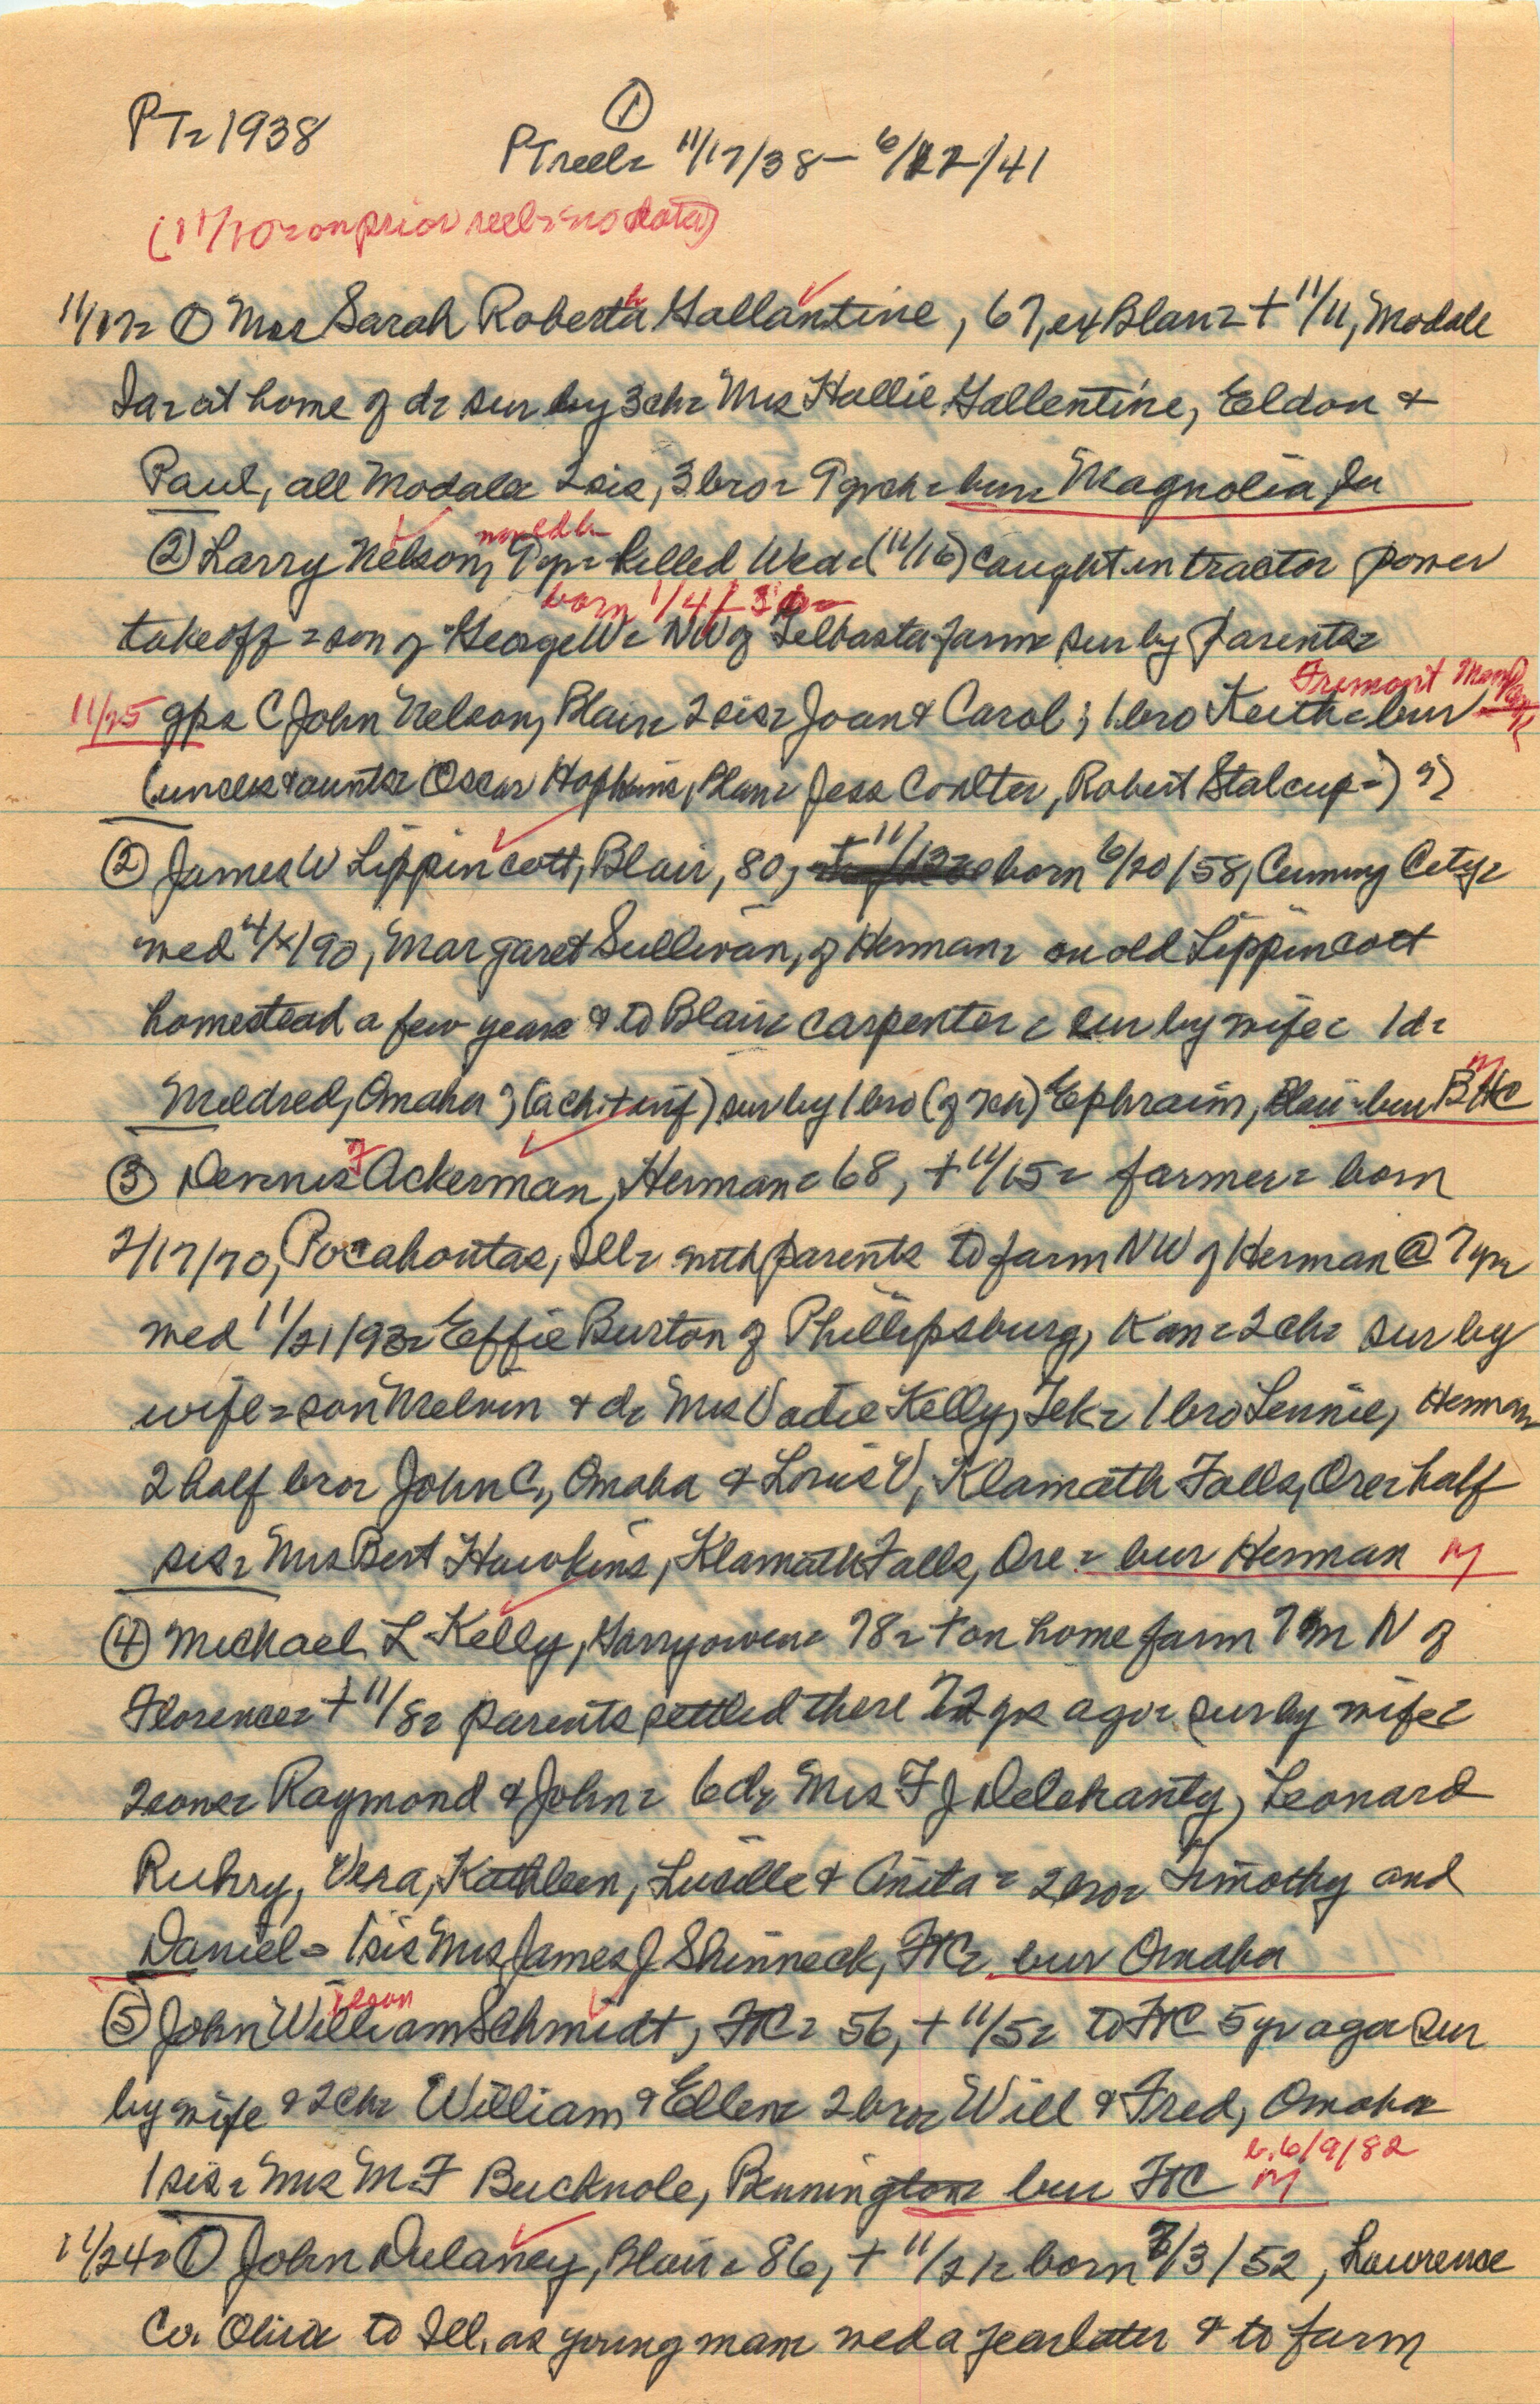 PT= 1938
①
PT reel= 11/17/38 — 6/12/41
(11/10= on prior reel= no data)
11/17= ① Mrs Sarah Roberta Gallantine, 67, ex Blair= + 11/11, Modale
Ia= at home of d= sur by 3 ch= Mrs Hallie Gallentine, Eldon +
Paul, all Modale= 2 sis, 3 bro= 9 gch= bur= Magnolia, Ia
② Larry Nelson, 7 yr= killed Wed= (11/16) caught in tractor power
born 1/4/
takeoff= son of George W= NW of Telbasta farm= sur by parents=
Fremont Mem
11/25 gps C John Nelson, Blair= 2 sis= Joan & Carol; 1 bro Keith= bur
(uncles & aunts= Oscar Hopkins, Blair= Jess Coulter, Robert Stalcup=)
② James W Lippincott, Blair, 80, + 11/12= born 6/20/58, Cuming City=
wed 4/x/90, Margaret Sullivan, of Herman= on old Lippincott
homestead a few years & to Blair= carpenter= sur by wife= 1 d=
Mildred, Omaha; (a ch + inf) sur by 1 bro (of ch) Ephraim, Blair= bur BHC
M
③ Dennis F Ackerman, Herman= 68, + 11/15= farmer= born
2/17/70, Pocahontas, Ill= with parents to farm NW of Herman @ 7 yr=
wed 11/21/93= Effie Burton of Phillipsburg, Kan= 2 ch= sur by
wife= son Melvin + d= Mrs Vadie Kelly, Tek= 1 bro Lennie, Herman
2 half bro= John C, Omaha & Loris V, Klamath Falls, Ore= half
sis= Mrs Bert Hawkins, Klamath Falls, Ore= bur Herman M
④ Michael L Kelly, Garryowen= 78= + on home farm 7 m N of
Florence= + 11/8= parents settled there 72 yrs ago= sur by wife=
2 sons= Raymond & John= 6 d= Mrs F J Delehanty, Leonard
Ruhry, Vera, Kathleen, Lucille & Anita= 2 bro= Timothy and
Daniel= 1 sis Mrs James J Shinneck, FtC= bur Omaha
⑤ John William Schmidt, FtC= 56, + 11/5= to FtC 5 yr ago= sur
by wife & 2 ch= William & Ellen= 2 bro= Will & Fred, Omaha
b. 6/9/82
1 sis= Mrs M F Bucknole, Bennington= bur FtC M
11/24= ① John Delaney, Blair= 86, + 11/21= born 3/52, Lawrence
Co. Ohio= to Ill. as young man= wed a year later & to farm